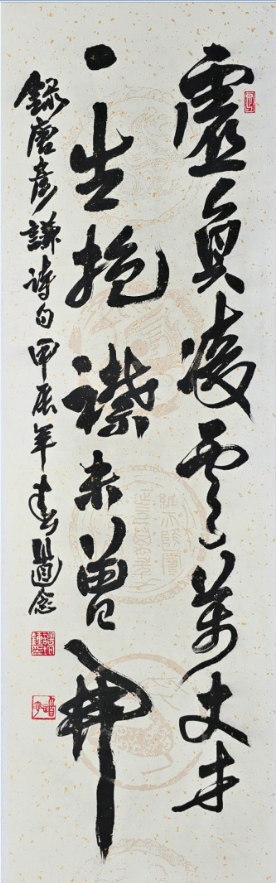 虛負凌雲萬丈才
一生抱襟未曾开
錄唐彥謙詩句甲辰年